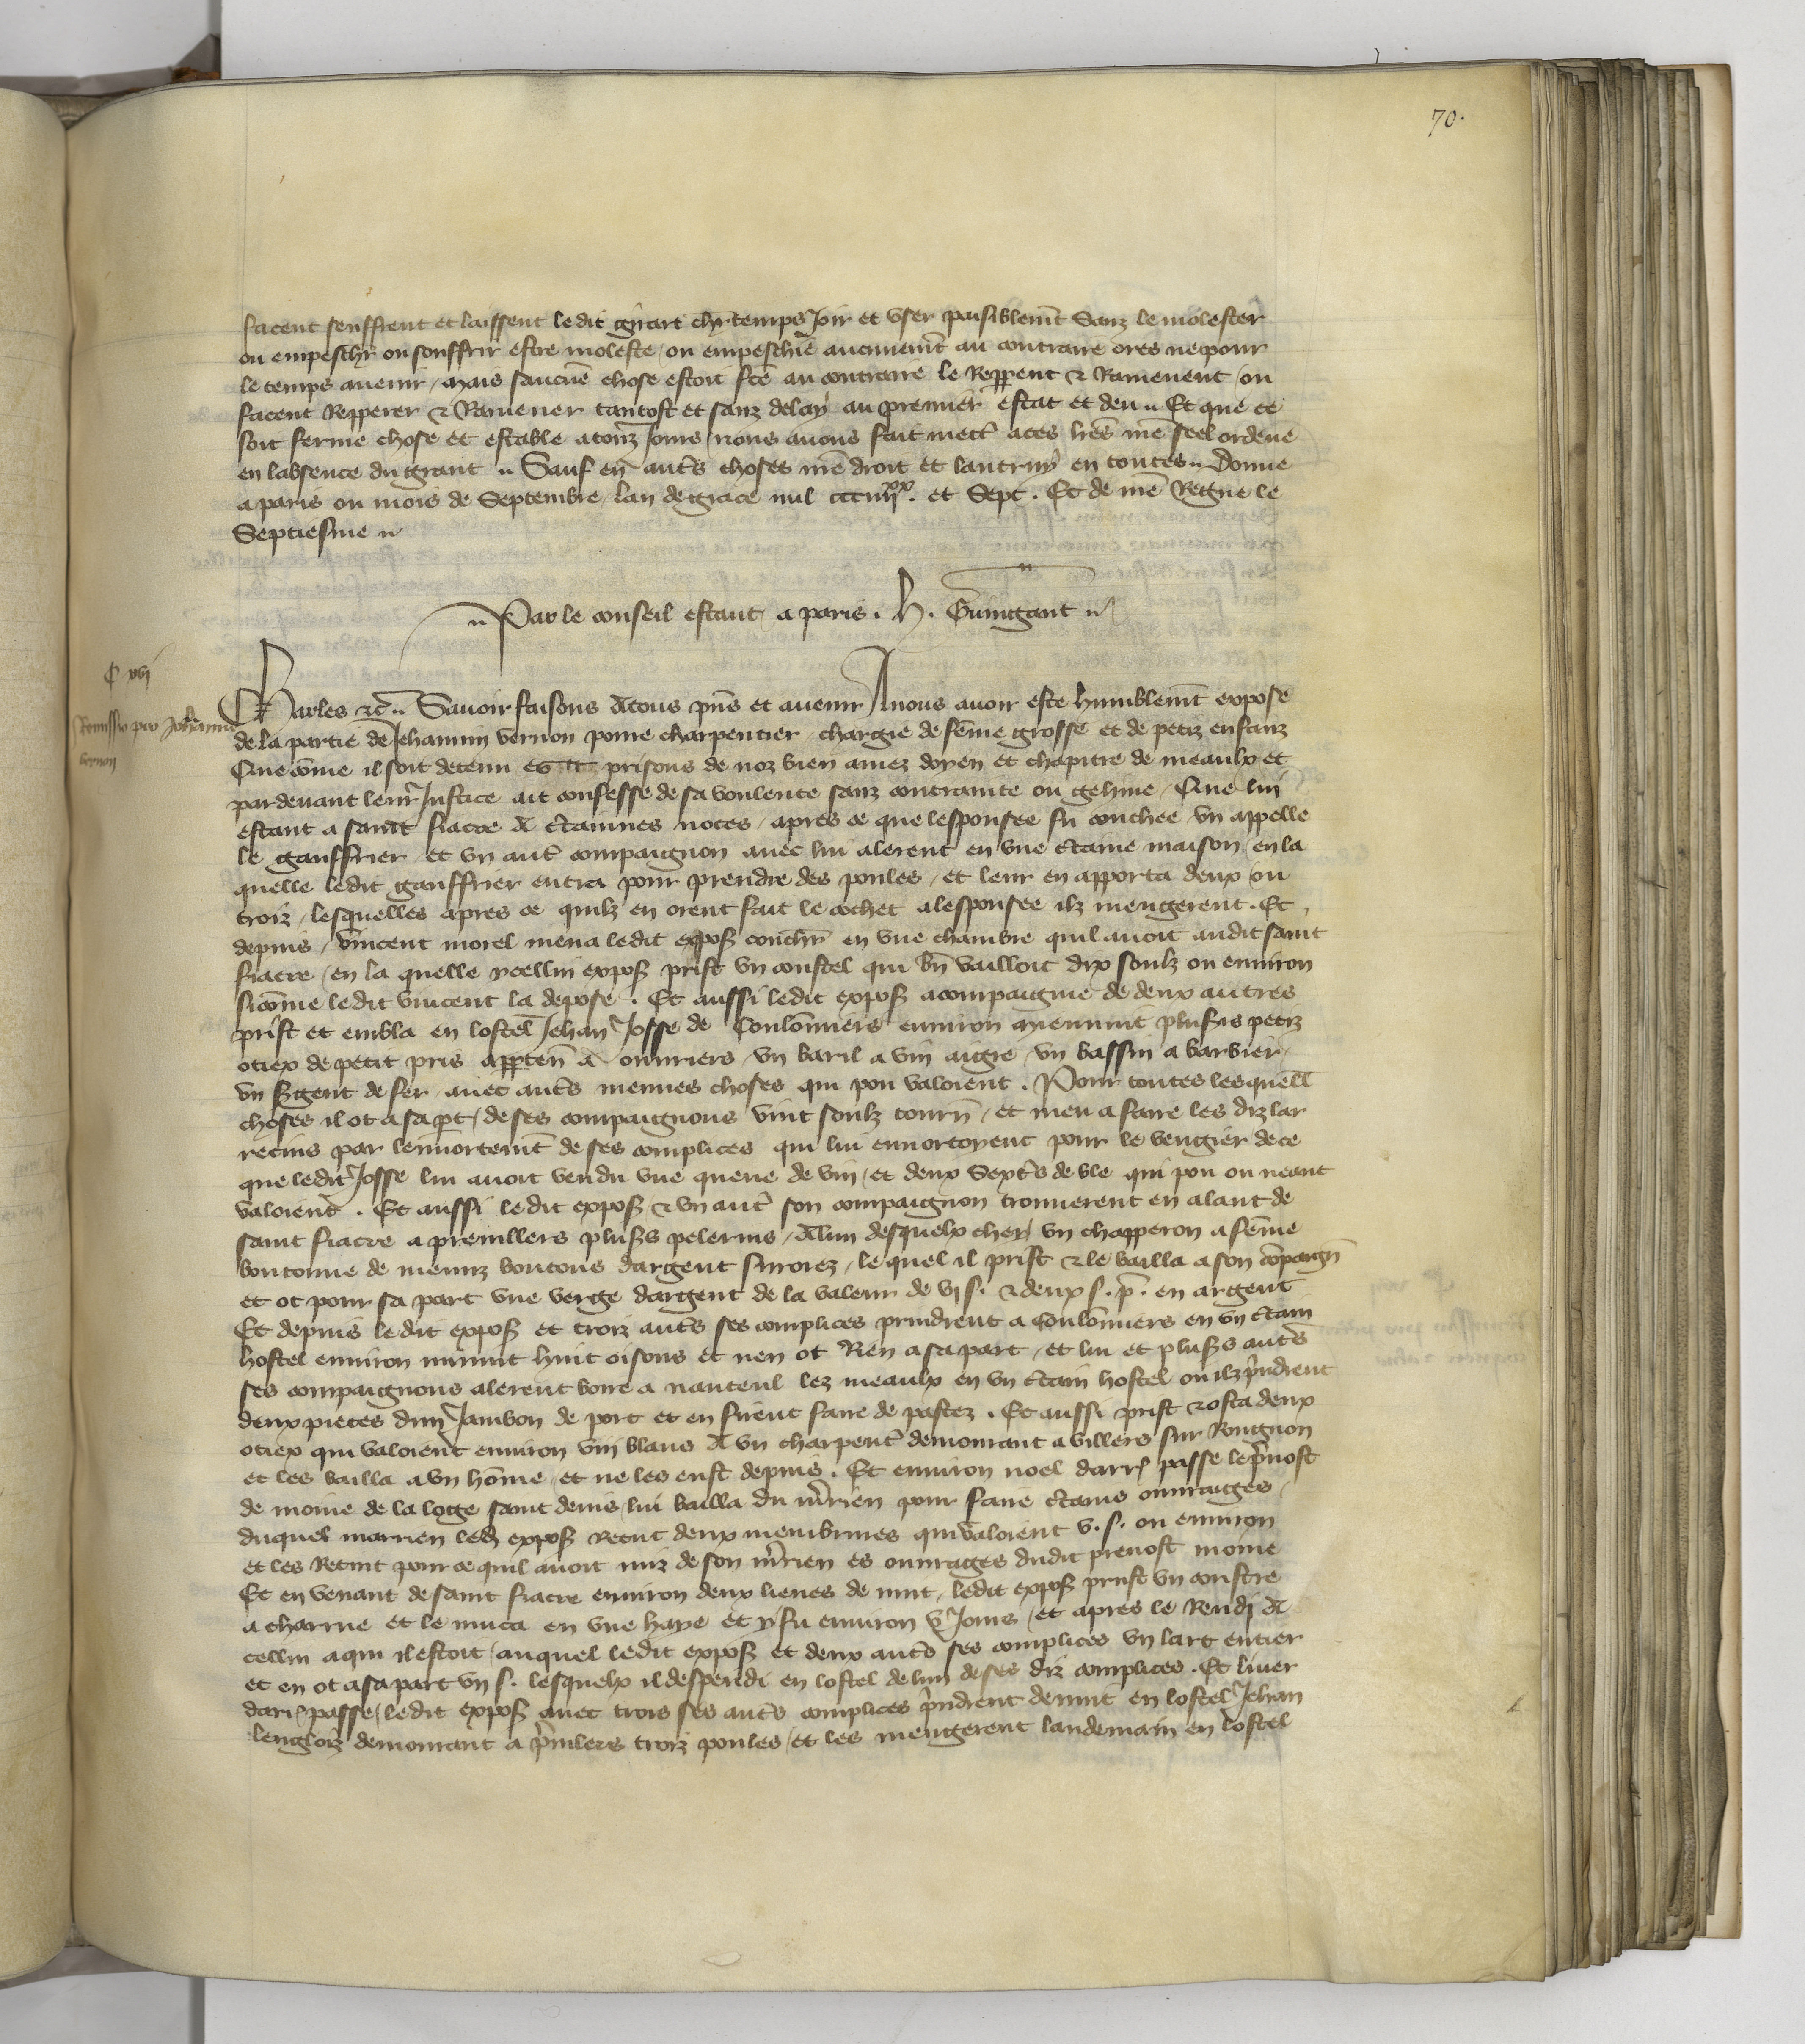 70.
facent seuffrent et laissent ledit girart chrtemps Joir et user paisiblemt Sanz le molester
ou empeschr ou souffrir estre moleste ou empeschie aucunemt au contraire ores ne pour
le temps auenir mais saucune chose estoit fce au contraire le Repperent & Ramenent ou
facent Repperer & Ramener tantost et sanz delay au premier estat et deu Et que ce
soit ferme chose et estable a touz Jours nous auons fait mectr a ces lres nre seel ordene
en labsence du grant Sauf en autrs choses nre droit et lautruy en toutes Donne
a paris ou mois de Septembre lan de grace mil ccc iiijxx. et Sept. Et de nre Regne le
Septiesme
Par le conseil estant a paris. H. Guingant
C xvj
Remissio pro Johanne
vernon
Charles &c Sauoir faisons A tous pns et auenir A nous auoir este humblemt expose
de la partie de Jehannin vernon poure charpentier chargie de feme grosse et de petiz enfanz
Que come il soit detenu es prisons de noz bien amez doyen et chapitre de meaulx et
pardeuant leur Justice ait confesse de sa voulente sanz contrainte ou gehine Que lui
estant a saint fiacre A ctainnes noces apres ce que lespousee fu couchee vn appelle
le gauffrier et vn autr compaignon auec lui alerent en vne ctaine maison en la
quelle ledit gauffrier entra pour prendre des poules et leur en apporta deux ou
troiz lesquelles apres ce quilz en orent fait le cochet a lespousee ilz mengerent. Et
depuis vincent morel mena ledit expos couchr en vne chambre quil auoit audit saint
fiacre en la quelle ycellui expos prist vn coustel qui bn vailloit dix soulz ou enuiron
sicome ledit vincent la depose. Et aussi ledit expos acompaignie de deux autres
prist et embla en lostel Jehan Josse de Coulomiers enuiron mienuuit plusrs petiz
otiex de petit pris apprten A ouuriers vn baril a vin aigre vn bassin a barbier
vn srgent de fer auec autrs menues choses qui pou valoient. Pour toutes lesquell
choses il ot a sa prt de ses compaignons vint soulz tourn et meu a faire les diz lar
recins par lennortemt de ses complices qui lui ennortoyent pour le vengier de ce
que ledit Josse lui auoit vendu vne queue de vin et deux Sextrs de ble qui pou ou neant
valoient. Et aussi ledit expos & vn autr son compaignon trouuerent en alant de
saint fiacre a premillers plusrs pelerins A lun desquelx chey vn chapperon a feme
boutonne de menuz boutons dargent surorez le quel il prist & le bailla a son copaign
et ot pour sa part vne verge dargent de la valeur de vj s. & deux s. p. en argent
Et depuis ledit expos et troiz autrs ses complices prindrent a Coulomiers en vn ctain
hostel enuiron minuit huit oisons et nen ot Rien a sa part et lui et plusrs autrs
ses compaignons alerent boire a nanteul lez meaulx en vn ctain hostel ou ilz prindrent
deux pieces dun Jambon de porc et en firent faire de pastez. Et aussi prist & osta deux
otiex qui valoient enuiron viij blans A vn charpentr demourant a villers sur Rongnon
et les bailla a vn home et ne les eust depuis. Et enuiron noel darr passe le preuost
de moine de la loge saint denis lui bailla du mrrien pour faire ctains ouuraiges
duquel marrien led expos retint deux membrures qui valoient v. s. ou enuiron
et les Retint pour ce quil auoit miz de son mrrien es ouurages dudit preuost moine
Et en venant de saint fiacre enuiron deux lieues de nuit ledit expos prist vn coustre
a charrue et le muca en vne haye et y fu enuiron v Jours et apres le Rendi A
cellui a qui il estoit auquel ledit expos et deux autrs ses complices vn lart entier
et en ot a sa part vij s. lesquelx il despendi en lostel de lun de ses diz complices. Et liuer
darr passe ledit expos auec trois ses autrs complices prindrent de nuit en lostel Jehan
lenglois demourant a prmilers troiz poules et les mengerent landemain en lostel